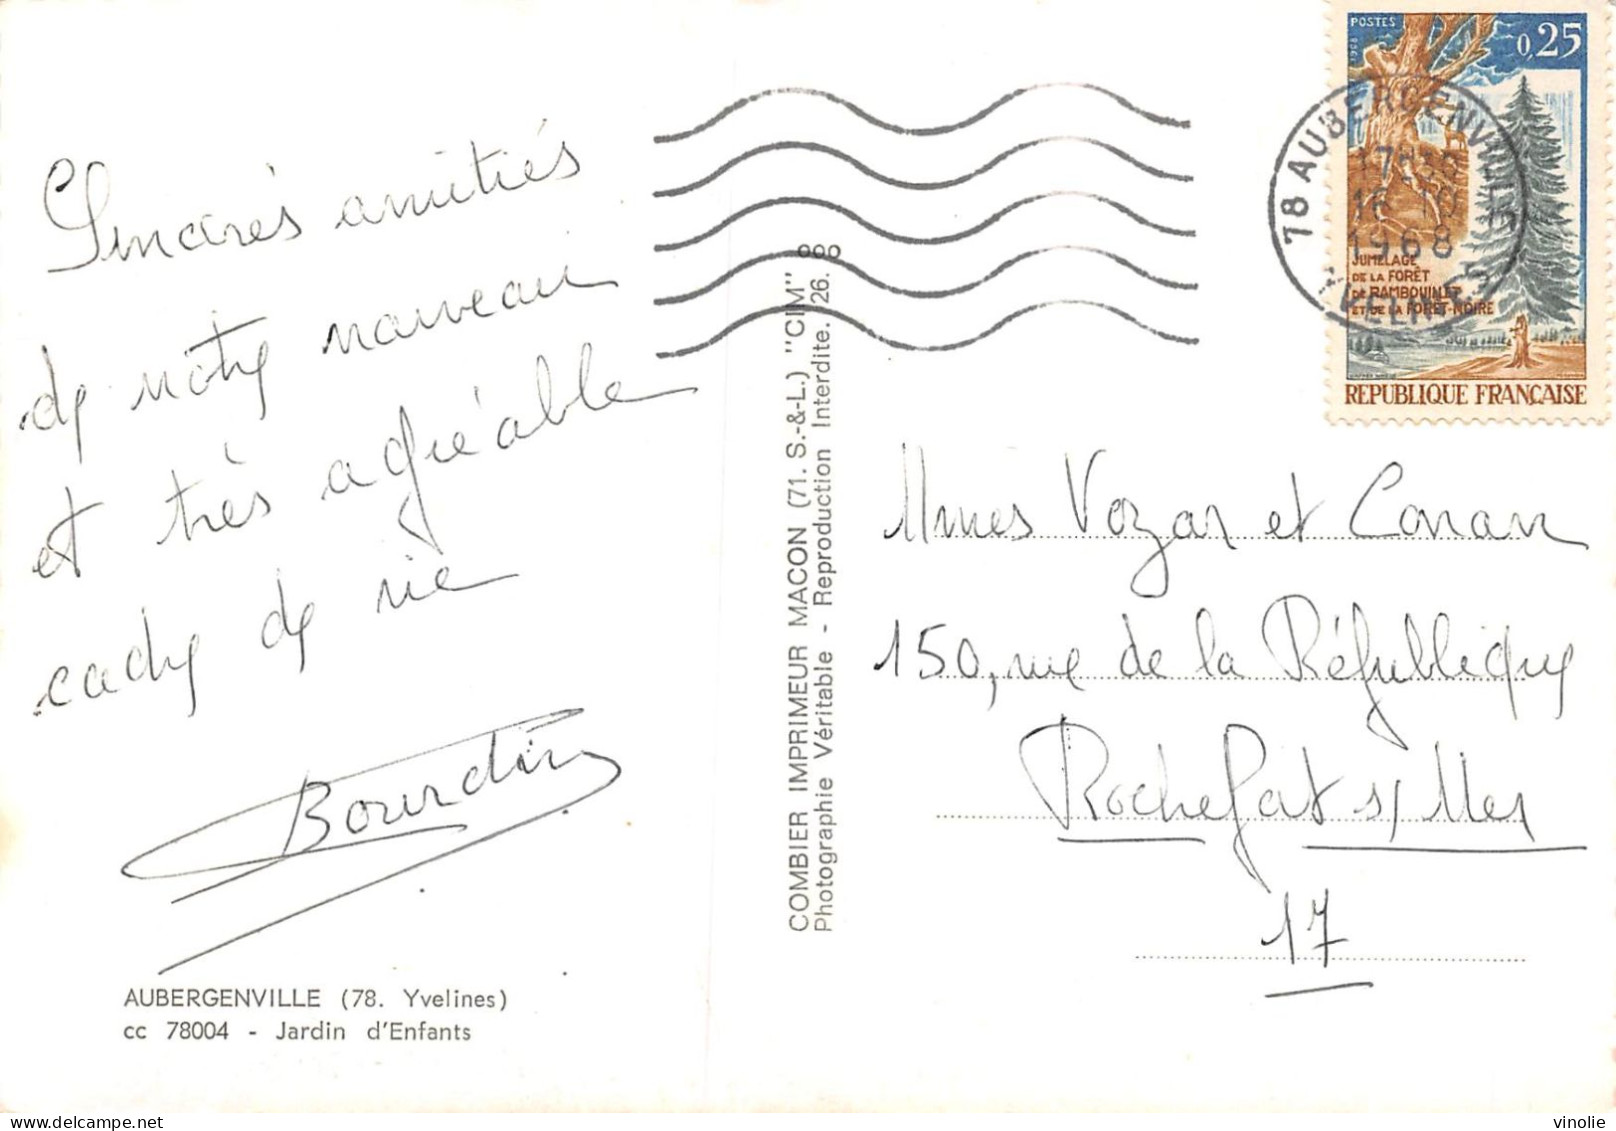 Sincères amitiés
de notre nouveau
et très agréable
cadre de vie
Bourdin
AUBERGENVILLE (78. Yvelines)
cc 78004 - Jardin d'Enfants
COMBIER IMPRIMEUR MACON (71. S.-&-L.) "CIM"
Photographie Véritable - Reproduction Interdite. 26.
POSTES
1968
0,25
JUMELAGE
DE LA FORÊT
DE RAMBOUILLET
ET DE LA FORÊT-NOIRE
REPUBLIQUE FRANÇAISE
78 AUBERGENVILLE
17H30
16-10
1968
YVELINES
Mmes Vozar et Conan
150, rue de la République
Rochefort s/Mer
17
vinolie